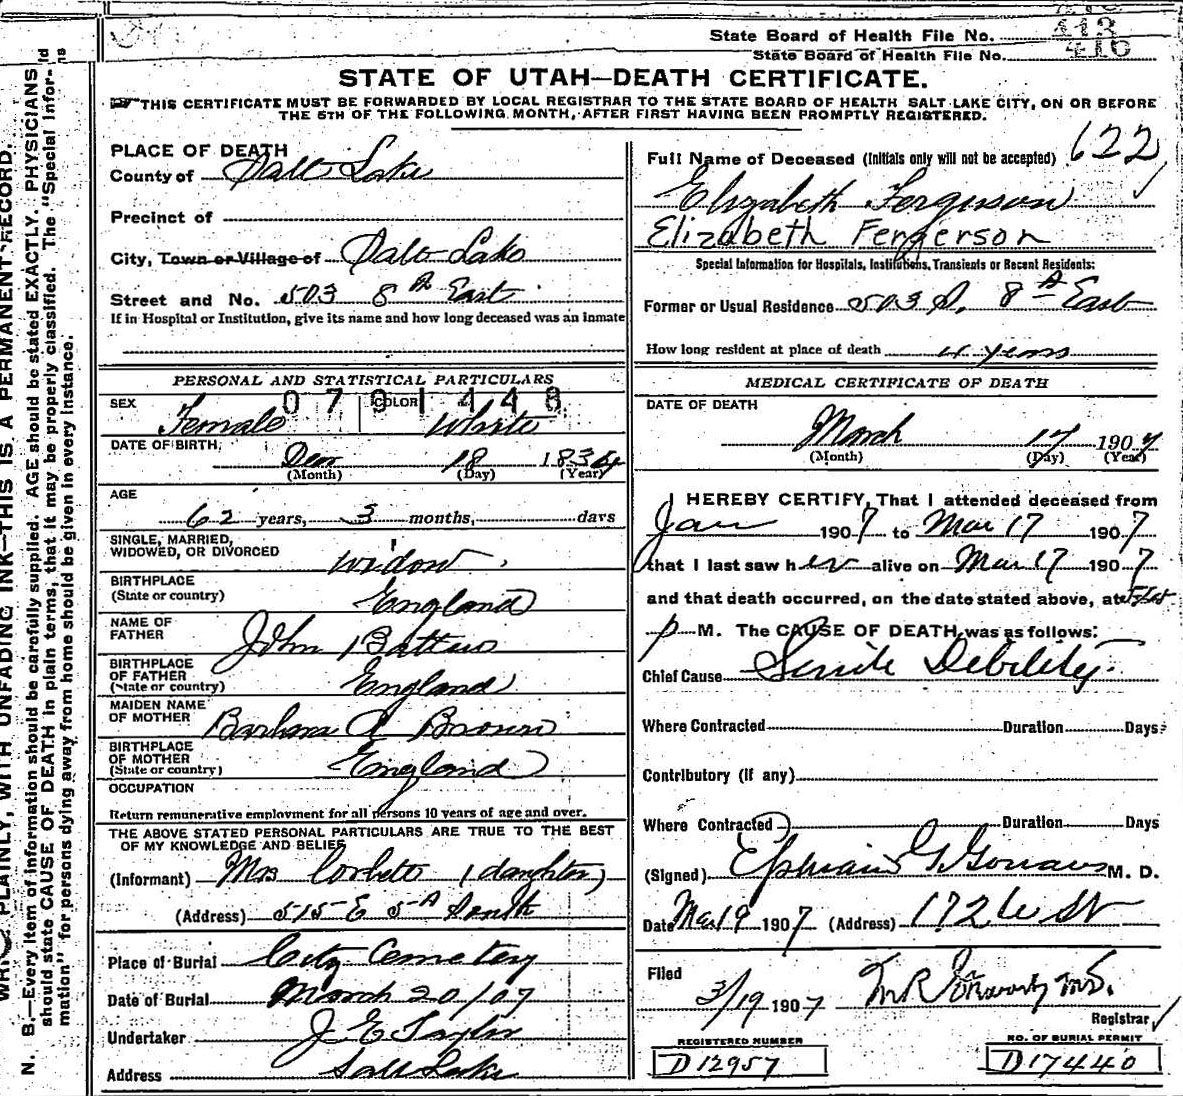 State Board of Health File No.
413
State Board of Health File No.
416
STATE OF UTAH—DEATH CERTIFICATE.
THIS CERTIFICATE MUST BE FORWARDED BY LOCAL REGISTRAR TO THE STATE BOARD OF HEALTH SALT LAKE CITY, ON OR BEFORE
THE 5TH OF THE FOLLOWING MONTH, AFTER FIRST HAVING BEEN PROMPTLY REGISTERED.
PLACE OF DEATH
County of Salt Lake
Precinct of
City, Town or Village of Salt Lake
Street and No. 503 8th East
If in Hospital or Institution, give its name and how long deceased was an inmate
PERSONAL AND STATISTICAL PARTICULARS
0791448
SEX Female COLOR White
DATE OF BIRTH, Dec 18 1834
(Month) (Day) (Year)
AGE
62 years, 3 months, days
SINGLE, MARRIED,
WIDOWED, OR DIVORCED widow
BIRTHPLACE
(State or country) England
NAME OF
FATHER John
BIRTHPLACE
OF FATHER
(State or country) England
MAIDEN NAME
OF MOTHER Barbara A Brown
BIRTHPLACE
OF MOTHER
(State or country) England
OCCUPATION
Return remunerative employment for all persons 10 years of age and over.
THE ABOVE STATED PERSONAL PARTICULARS ARE TRUE TO THE BEST
OF MY KNOWLEDGE AND BELIEF
(Informant) Mrs Corbett (daughter)
(Address) 515 E 5th South
Place of Burial City Cemetery
Date of Burial March 20/07
Undertaker J E Taylor
Address Salt Lake
Full Name of Deceased (Initials only will not be accepted) 622
Elizabeth Ferguson
Elizabeth Fergerson
Special Information for Hospitals, Institutions, Transients or Recent Residents:
Former or Usual Residence 503 S. 8th East
How long resident at place of death 4 years
MEDICAL CERTIFICATE OF DEATH
DATE OF DEATH
March 17 1907
(Month) (Day) (Year)
I HEREBY CERTIFY, That I attended deceased from
Jan 1907 to Mar 17 1907
that I last saw her alive on Mar 17 1907
and that death occurred, on the date stated above, at
p M. The CAUSE OF DEATH was as follows:
Chief Cause Senile Debility
Where Contracted Duration Days
Contributory (if any)
Where Contracted Duration Days
(Signed) Ephraim G Gowans M. D.
Date Mar 19 1907 (Address)
Filed
3/19 1907
Registrar
REGISTERED NUMBER
D12957
NO. OF BURIAL PERMIT
D17440
PLAINLY, WITH UNFADING INK—THIS IS A PERMANENT RECORD.
N. B.—Every item of information should be carefully supplied. AGE should be stated EXACTLY. PHYSICIANS
should state CAUSE OF DEATH in plain terms, that it may be properly classified. The "Special Infor-
mation" for persons dying away from home should be given in every instance.